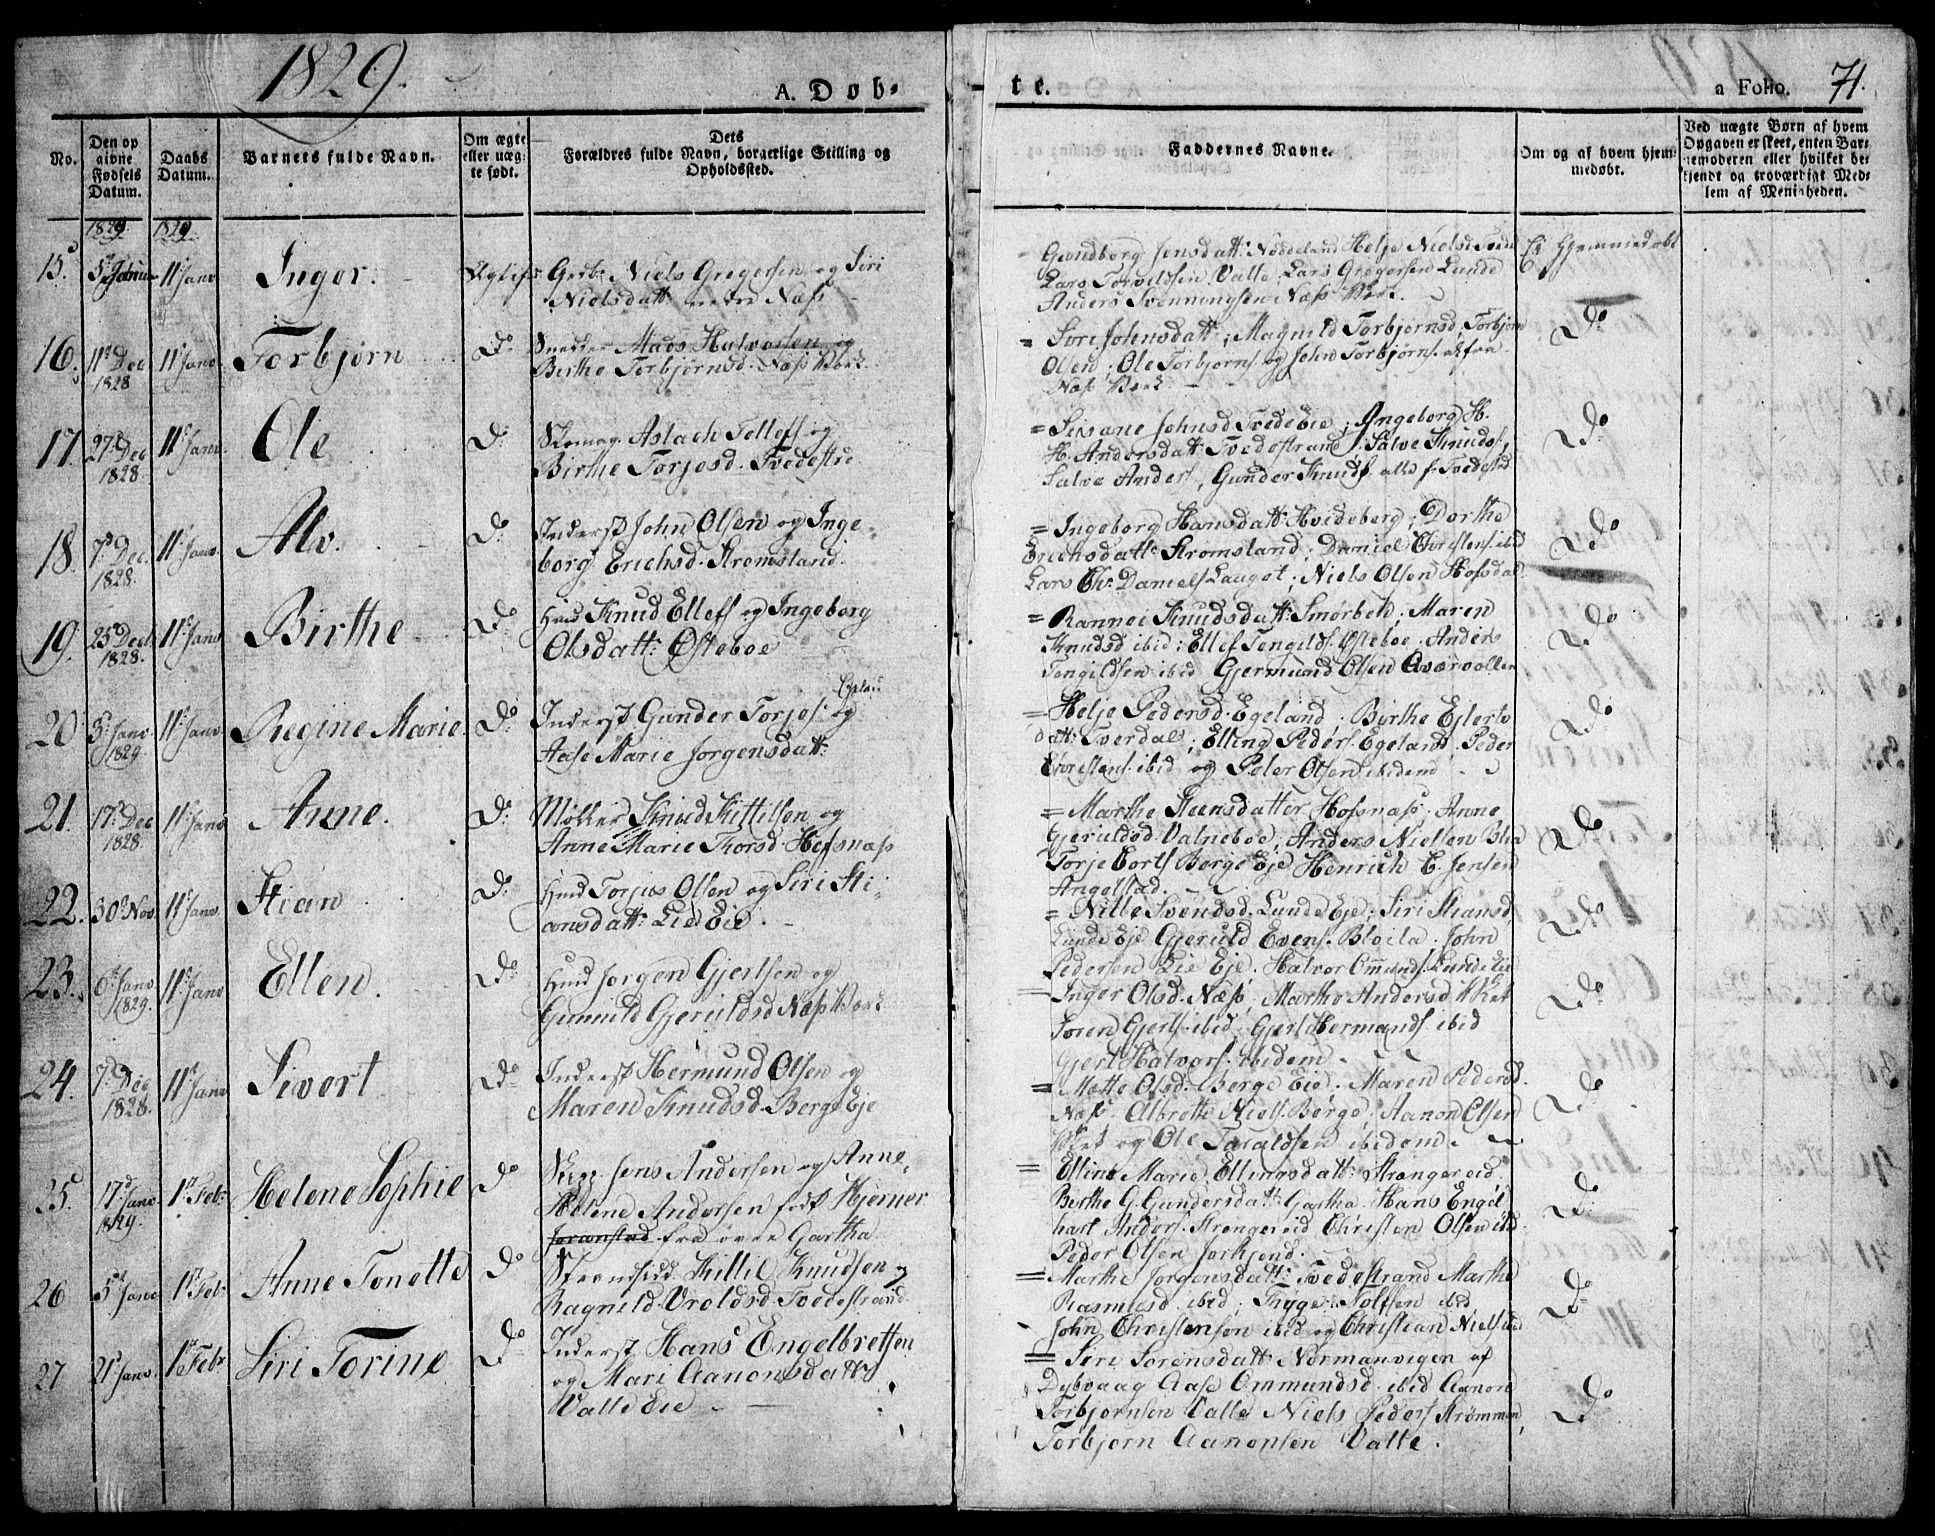 1829.
A. Døb-
te.
a Folio. 71.
No.
Den op
givne
Fødsels
Datum.
Daabs
Datum.
Barnets fulde Navn.
Om ægte
eller uæg-
te født.
Dets
Forældres fulde Navn, borgerlige Stilling og
Opholdssted.
Faddernes Navne.
Om og af hvem hjem-
medøbt.
Ved uægte Børn af hvem
Opgaven er skeet, enten Bar-
nemoderen eller hvilket be-
kjendt og troværdigt Med-
lem af Menigheden.
1829 1829
15. 5 Janu 11 Janv Inger. Niels Gregersen og Siri
Nielsdatt: Næs
Gundborg Jensdatt: Helje Niels
Lars Torvildsen Valle; Lars Gregersen Lunde
Anders Svenningsen Næs Værk
Ej hjemmedøbt
16. 11 Dec 1828 11 Janv Torbjørn Do Smedder Mads Halvorsen og
Birthe Torbjørnsd. Næs Værk
= Siri Johnsdatt; Magnild Torbjørnsd, Torbjørn
Olsen; Ole Torbjørns. og John Torbjørns. a fra
Næs Værk
Do
17. 27 Dec 1828 11 Janv. Ole D: Skomag. Aslach Tellefs og
Birthe Torjosd. Tvedestr
= Johnsd Tvede Eie; Ingeborg H.
H. Andersdatt Tvedestrand; Salve Knuds.
Salve Anders, Gunder Knuds. alle f. Tvedestrd
Do
18. 7 Dec. 1828. 11 Janv. Alv. Do Inderst John Olsen og Inge-
borg Erichsd. Strømsland.
= Ingeborg Hansdatt: Hvideberg; Dorthe
Erichsdatt: Strømsland; Daniel Christens. ibid
Lars Chr. Daniels Lauget; Niels Olsen Hofsdal
Do
19. 25 Dec 1828. 11 Janv Birthe Do Hmd Knud Ellefs og Ingeborg
Olsdatt: Østeboe
= Rannei Knudsdatt: Smørbek; Maren
Knudsd ibid; Ellef Tengilds. Østeboe; Anders
Tengildsen ibid Gjermund Olsen Qværvollen
Do
20 3 Janv 1829. 11 Janv Regine Marie. Do Inderst Gunder Torjos. og
Aase Marie Jorgensdatt:
= Helje Pedersd. Egeland; Birthe Ejlerts
datt: Tverdal; Elling Peders. Egeland. Peder
Christens. ibid og Peter Olsen ibidem
Do
21. 17 Dec 1828. 11 Janv Anne. Do Møller Knud Kittilsen og
Anne Marie Thorsd. Hofsnæs
= Marthe Steensdatter Hofsnæs; Anne
Gjeruldsd. Valneboe; Anders Nielsen
Torje Berge Eje Henrich E. Jensen
Angelstad.
Do
22. 30 Nov. 11 Janv. Stian D: Hmd Torjus Olsen og Siri Sti-
ansdatt: Lie Eie.
= Nille Svendsd. Lunde Eje; Siri Stiansd,
Lunde Eje Gjeruld Evens. Bloila. John
Pedersen Lie Eje. Halvor Ommunds. Lunde Eie
Do
23. 6 Janv 1829. 11 Janv Ellen. Do Hmd Jørgen Gjertsen og
Gunnild Gjeruldsd Næs Værk
= Inger Olsd. Næs; Marthe Andersd
Søren Gjerts. ibid; Gjert Hermands. ibid
Gjert Halvors. ibidem
Do
24. 7 Dec 1828. 11 Janv Sivert Do Inderst Hermund Olsen og
Maren Knudsd. Berge Eje
= Mette Olsd. Berge Eie. Maren Pedersd.
Næs. Albrette Niels. Berge; Aanon Elsen
og Ole Taraldsen ibidem.
Do
25. 17 Janv 1829. 1 Feb. Helene Sophie Do Jens Andersen og Anne
Helene Andersen født Hjerner
fra øvre Gartha
= Elline Marie Ellingsdatt: Strengereid,
Berthe G. Gundersdatt: Gartha. Hans Engel
hart Anders. Strengereid Christen Olsen ibd.
Peder Olsen
Do
26 5 Janv 1 Feb. Anne Tonette Do Kittil Knudsen og
Ragnild Uroldsd. Tvedestrand.
= Marthe Jorgensdatt: Tvedestrand Marthe
Rasmusd ibid; Tryge Tolfsen ibid
John Christensen ibid og Christian Niels ibid
Do
27 21 Janv. 1 Feb Siri Torine Do Inderst Hans Engelbretsen
og Mari Aanonsdatt:
Valle Eie
= Siri Sorensdatt: Normanvigen af
Dybvaag Aase Ommundsd. ibid Aanon
Torbjørnsen Valle Niels Peders Strømmen,
Torbjørn Aanonsen Valle.
Do